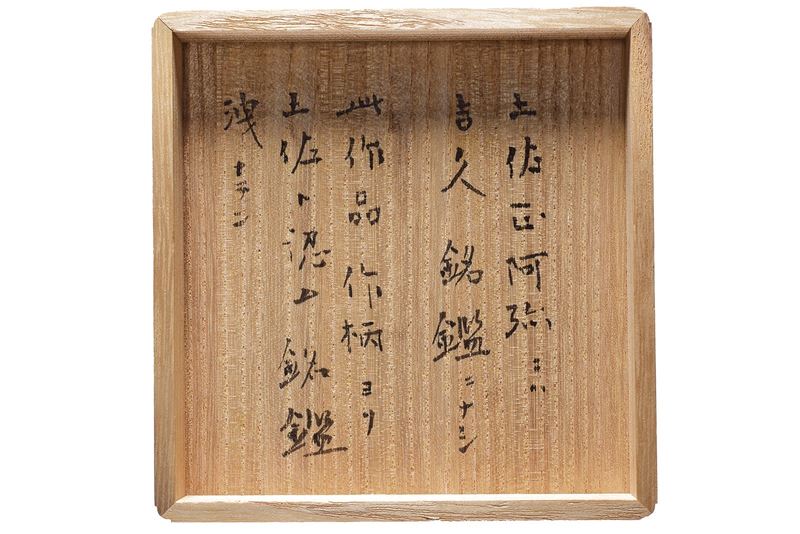 土佐正阿弥ニハ
吉久 銘鑑ニナシ
此作品 作柄ヨリ
土佐ト認ム 銘鑑
洩ナラン